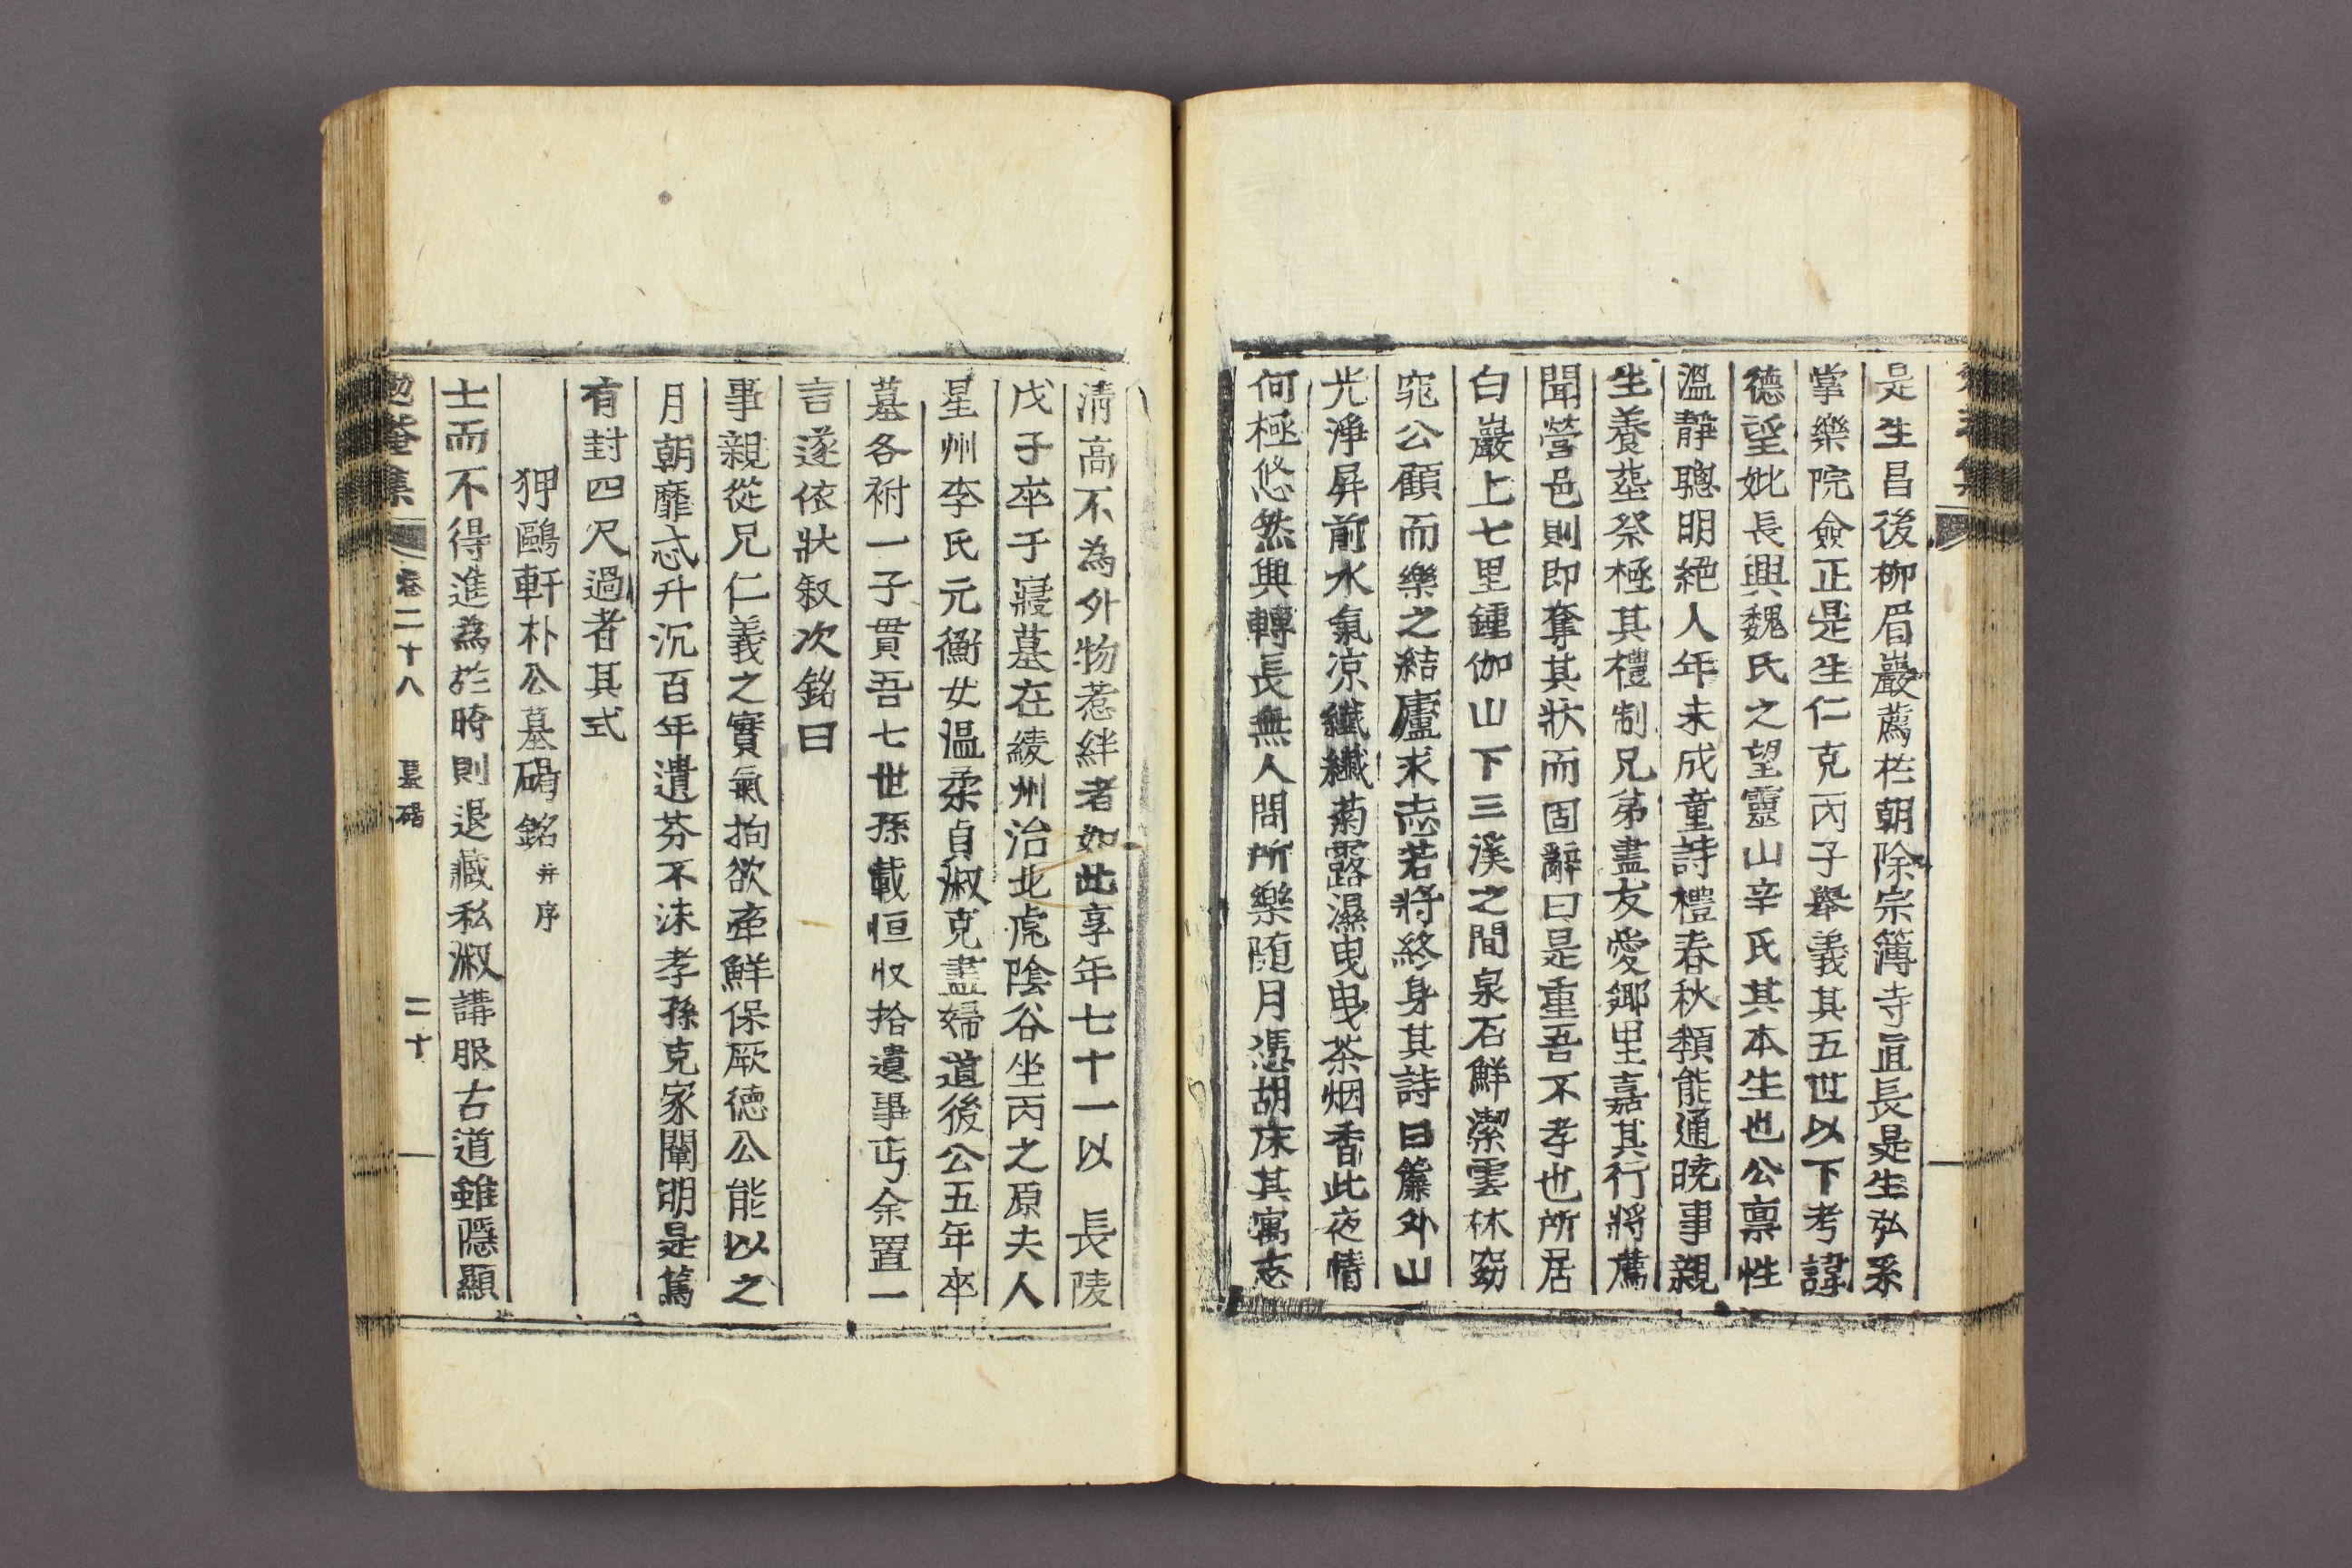 是生昌後柳眉巖薦於朝除宗簿寺直長是生弘系
掌樂院僉正是生仁克丙子擧義其五世以下考諱
德望妣長興魏氏之望靈山辛氏其本生也公禀性
溫靜聰明絕人年未成童詩禮春秋類能通曉事親
生養葬祭極其禮制兄弟盡友愛鄕里嘉其行將薦
聞營邑則即奪其狀而固辭曰是重吾不孝也所居
白巖上七里鍾伽山下三溪之間泉石鮮潔雲林窈
窕公顧而樂之結廬求志若將終身其詩曰簾外山
光淨屛前水氣凉纖纖菊露濕曳曳茶烟香此夜情
何極悠然興轉長無人問所樂随月憑胡床其寓志
清高不為外物惹絆者如此享年七十一以 長陵
戊子卒于寢墓在綾州治北虎陰谷坐丙之原夫人
星州李氏元衡女溫柔貞淑克盡婦道後公五年卒
墓各祔一子貫吾七世孫載恒收拾遺事丐余置一
言遂依狀叙次銘曰
事親從兄仁義之實氣拘欲牽鮮保厥德公能以之
月朝靡忒升沉百年遺芬不沬孝孫克家闡明是篤
有封四尺過者其式
狎鷗軒朴公墓碣銘 并序
士而不得進為於時則退藏私淑講服古道雖隱顯
勉菴集 卷二十八 墓碣 二十